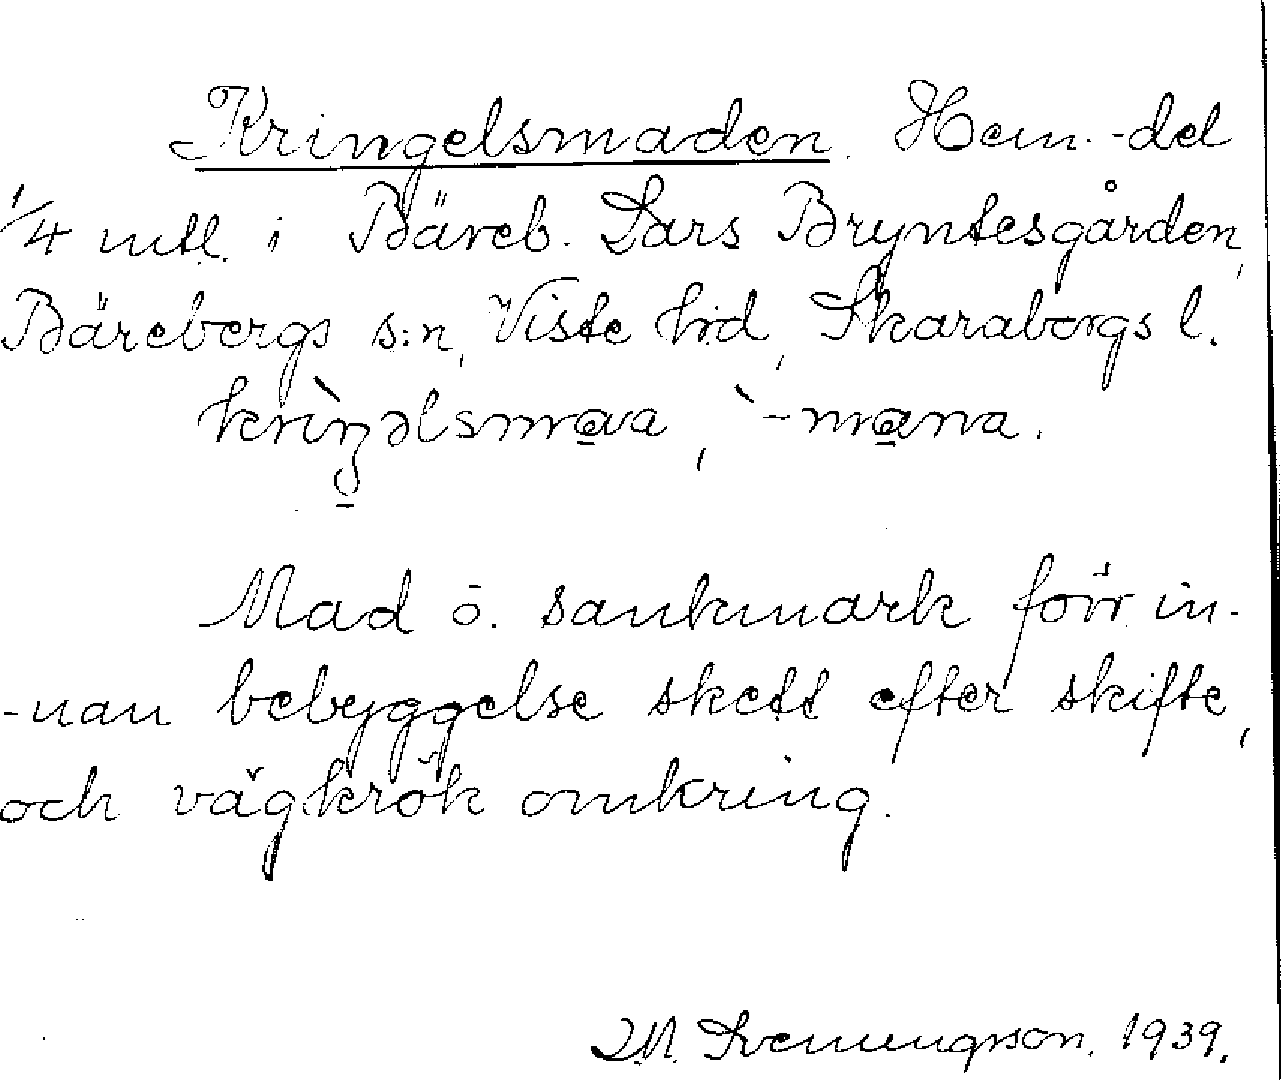 Kringelsmaden. Hem.-del
1/4 mtl. i Bäreb. Lars Bryntesgården,
Bärebergs s:n, Viste hd, Skaraborgs l.
kri̇̀ŋəlsmava, `-mana.
Mad o. sankmark förr in-
-nan bebyggelse skett efter skifte,
och vägkrök omkring.
Svenungsson. 1939.